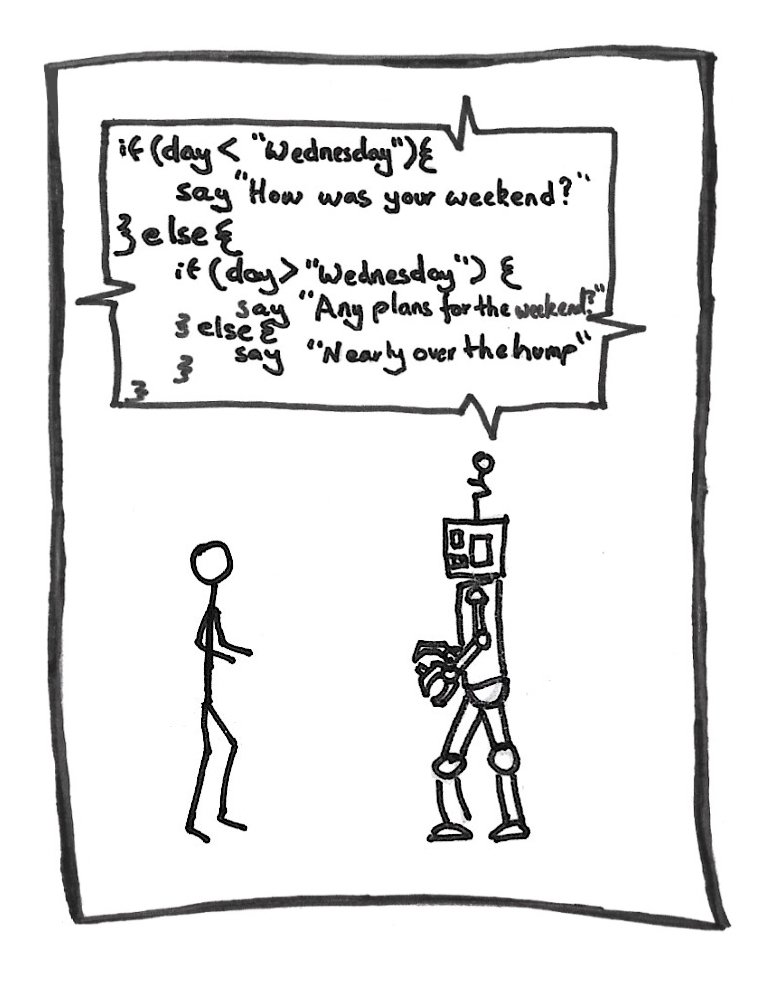 if (day < "Wednesday"){
say "How was your weekend?"
} else {
if (day > "Wednesday") {
say "Any plans for the weekend?"
} else {
say "Nearly over the hump"
}
}